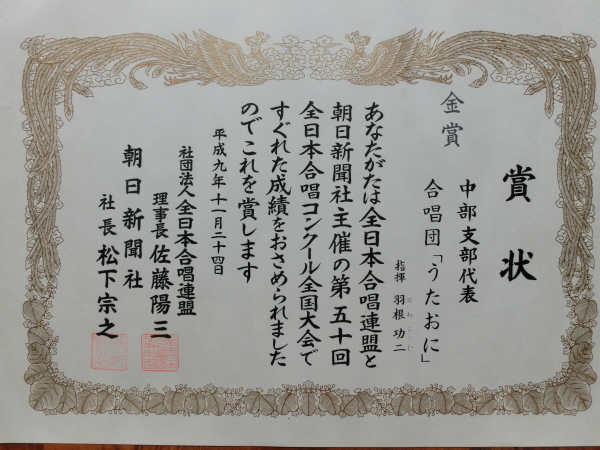 賞状
金賞
中部支部代表
合唱団「うたおに」
指揮 羽根功二
あなたがたは全日本合唱連盟と
朝日新聞社主催の第五十回
全日本合唱コンクール全国大会で
すぐれた成績をおさめられました
のでこれを賞します
平成九年十一月二十四日
社団法人全日本合唱連盟
理事長 佐藤陽三
朝日新聞社
社長 松下宗之